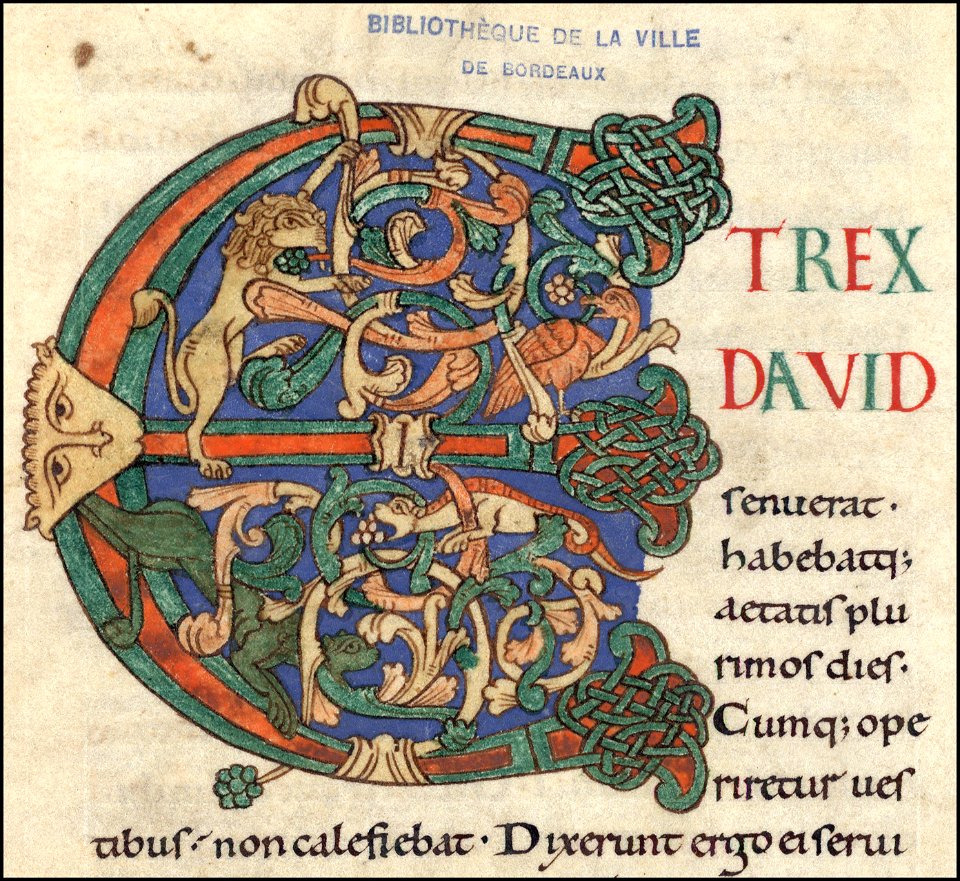 BIBLIOTHÈQUE DE LA VILLE
DE BORDEAUX
ET REX
DAVID
senuerat·
habebatq;
aetatis plu
rimos dies·
Cumq; ope
riretur ues
tibus· non calefiebat· Dixerunt ergo ei serui